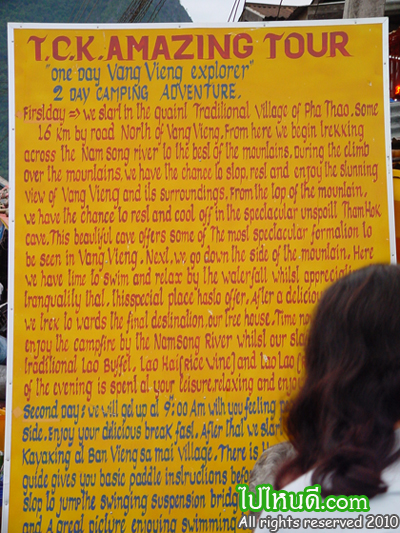 T.C.K. AMAZING TOUR
"one Day Vang Vieng explorer"
2 DAY CAMPING ADVENTURE.
First day => we start in the quaint Traditional Village of Pha Thao. Some
16 km by road North of Vang Vieng. From here we begin trekking
across the Nam Song river to the best of the mountains. During the climb
over the mountains, we have the chance to stop, rest and enjoy the stunning
view of Vang Vieng and its surroundings. From the top of the mountain,
we have the chance to rest and cool off in the spectacular unspoilt Tham Hok
cave. This beautiful cave offers some of The most spectacular formation to
be seen in Vang Vieng. Next, we go down the side of the mountain. Here
we have time to swim and relax by the waterfall whilst appreciat
tranquality that, this special place has to offer. After a delicious
we trek to wards the final destination, our tree house. Time no
enjoy the campfire by the Namsong River whilst our sta
traditional Lao Buffet, Lao Hai [Rice Wine] and Lao Lao [r
of the evening is spent at your leisure, relaxing and enjoy
Second day: we will get up at 9:00 Am with you feeling
Side. Enjoy your delicious break fast. After that we star
Kayaking at Ban Vieng sa mai Village. There is
guide gives you basic paddle instructions before
Stop to jump the swinging suspension bridg
and A great picture enjoying swimming
ไปไหนดี.com
All rights reserved 2010